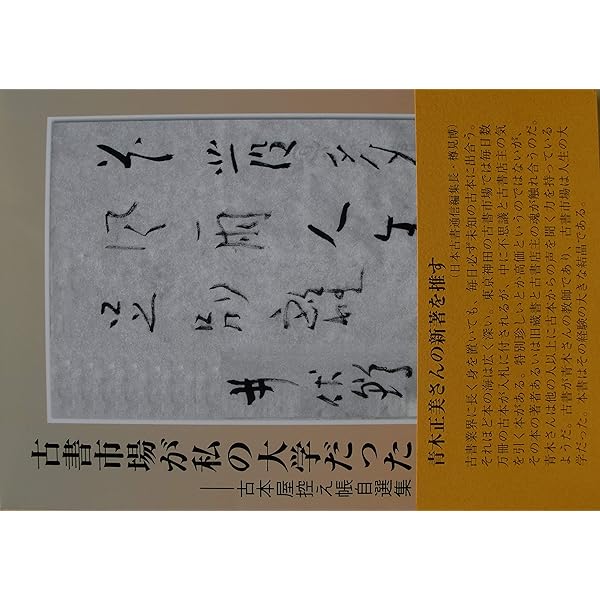 花發多
風雨人生
足別離
井伏鱒二
古書市場が私の大学だった
――古本屋控え帳自選集
青木正美さんの新著を推す
(日本古書通信編集長・樽見博)
古書業界に長く身を置いても、毎日必ず未知の古本に出合う。
それほど本の海は広く深い。東京神田の古書市場では毎日数
万冊の古本が入札に付されるが、中に不思議と古書店主の気
を引く本がある。特別珍しいとか高価というのではないが、
その本の著者あるいは旧蔵書と古書店主の魂が触れ合うのだ。
青木さんは他の人以上に古本からの声を聞く力を持っている
ようだ。古書が青木さんの教師であり、古書市場は人生の大
学だった。本書はその経験の大きな結晶である。